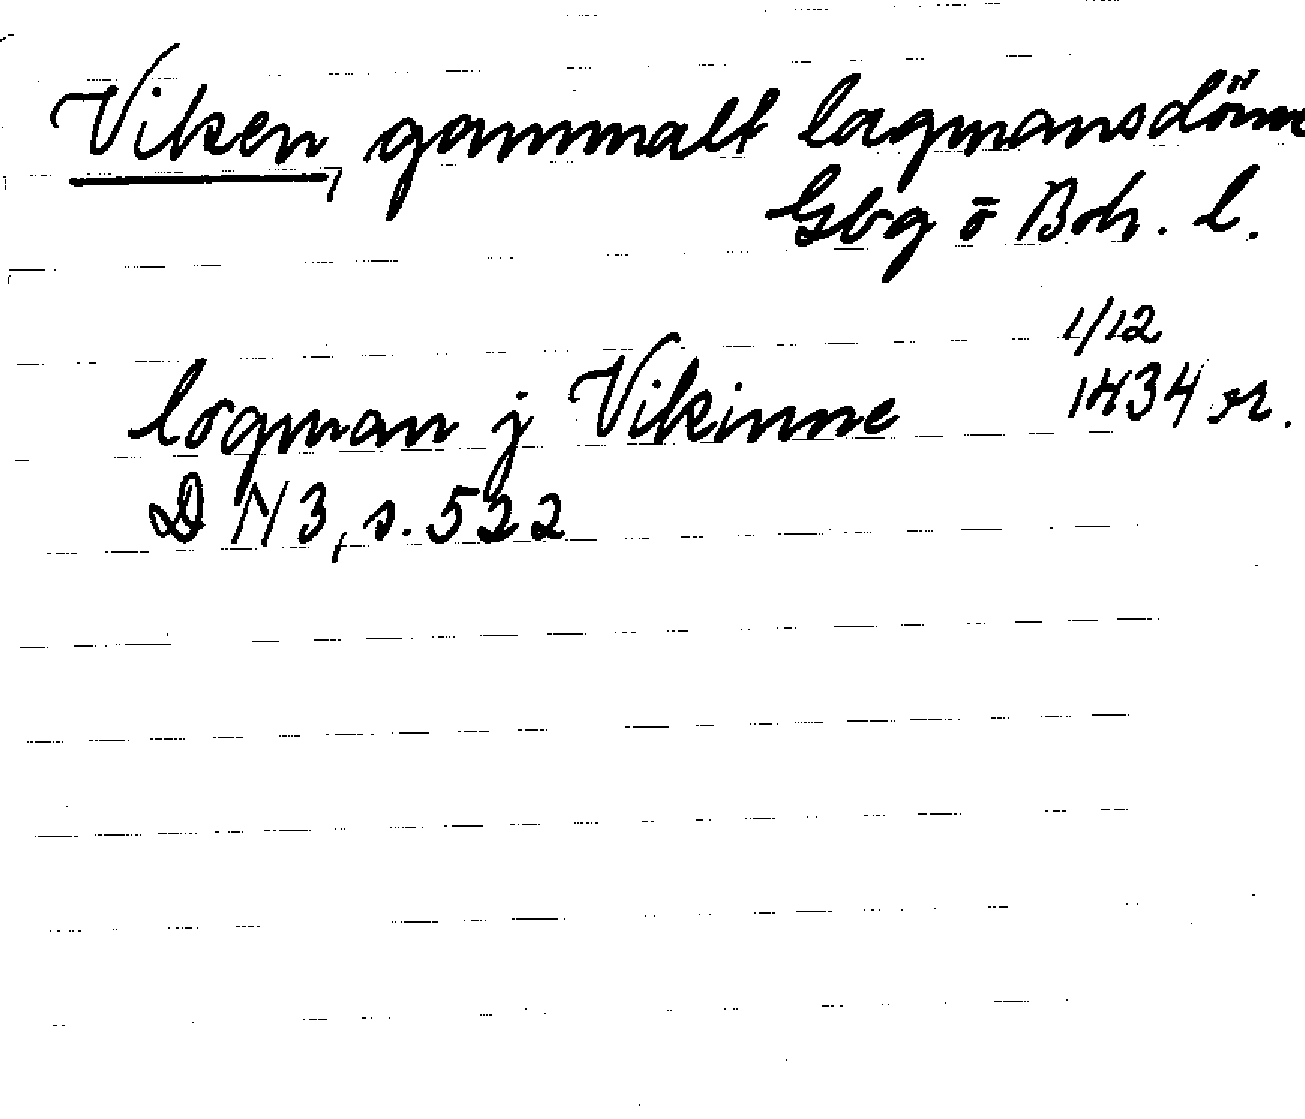 Viken, gammalt lagmansdöme
Gbg o Boh. l.
1/12
logman j Vikinne 1434 or.
DN 3, s. 522